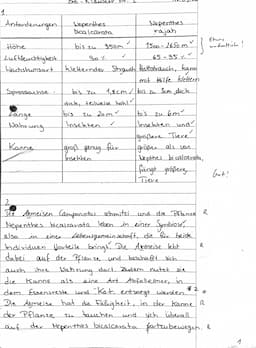 1.
Anforderungen Nepenthes bicalcarata Nepenthes rajah
Höhe bis zu 950m 1500-2650m
Luftfeuchtigkeit 90% 65-95%
Wuchsform kletternder Strauch
mit Hilfe klettern
Sprossachse bis zu 1,8cm
dick, teilweise hohl
Länge bis zu 20m bis zu 6m
Nahrung Insekten Insekten und
größere Tiere
Kanne groß genug für größer als von
Insekten Nepthes bicalcarata,
fängt größere
Tiere
Gut!
2.
Die Ameisen Camponotus schmitzi und die Pflanze R
Nepenthes bicalcarata leben in einer Symbiose,
also in einer Lebensgemeinschaft, die für beide
Individuen Vorteile bringt. Die Ameise lebt
dabei auf der Pflanze und beschafft sich
auch ihre Nahrung dort. Zudem nutzt sie
die Kanne als eine Art Abfalleimer, in
dem Essensreste und Kot entsorgt werden.
Die Ameise hat die Fähigkeit, in der Kanne R
der Pflanze zu tauchen und sich überall
auf der Nepenthes bicalcarata fortzubewegen. R
1